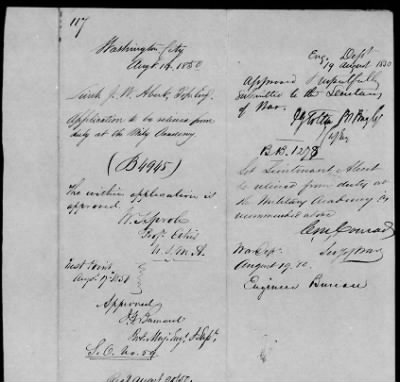 117
Washington City
Augt 14, 1850
Lieut J. W. Abert, Top. Eng.
Application to be relieved from
duty at the Mily Academy
(B4945)
The within application is
approved.
U. S. M. A.
West Point
Approved
Bvt. Maj. Engr
S. C. No. 59
Eng. Dept
19 August 1850
Approved & respectfully
submitted to the Secretary
of War.
B.B. 1278
Let Lieutenant Abert
be relieved from duty at
the Military Academy as
recommended above
C. M. Conrad
Secy of War
War Dept.
August 19. 50.
Engineer Bureau